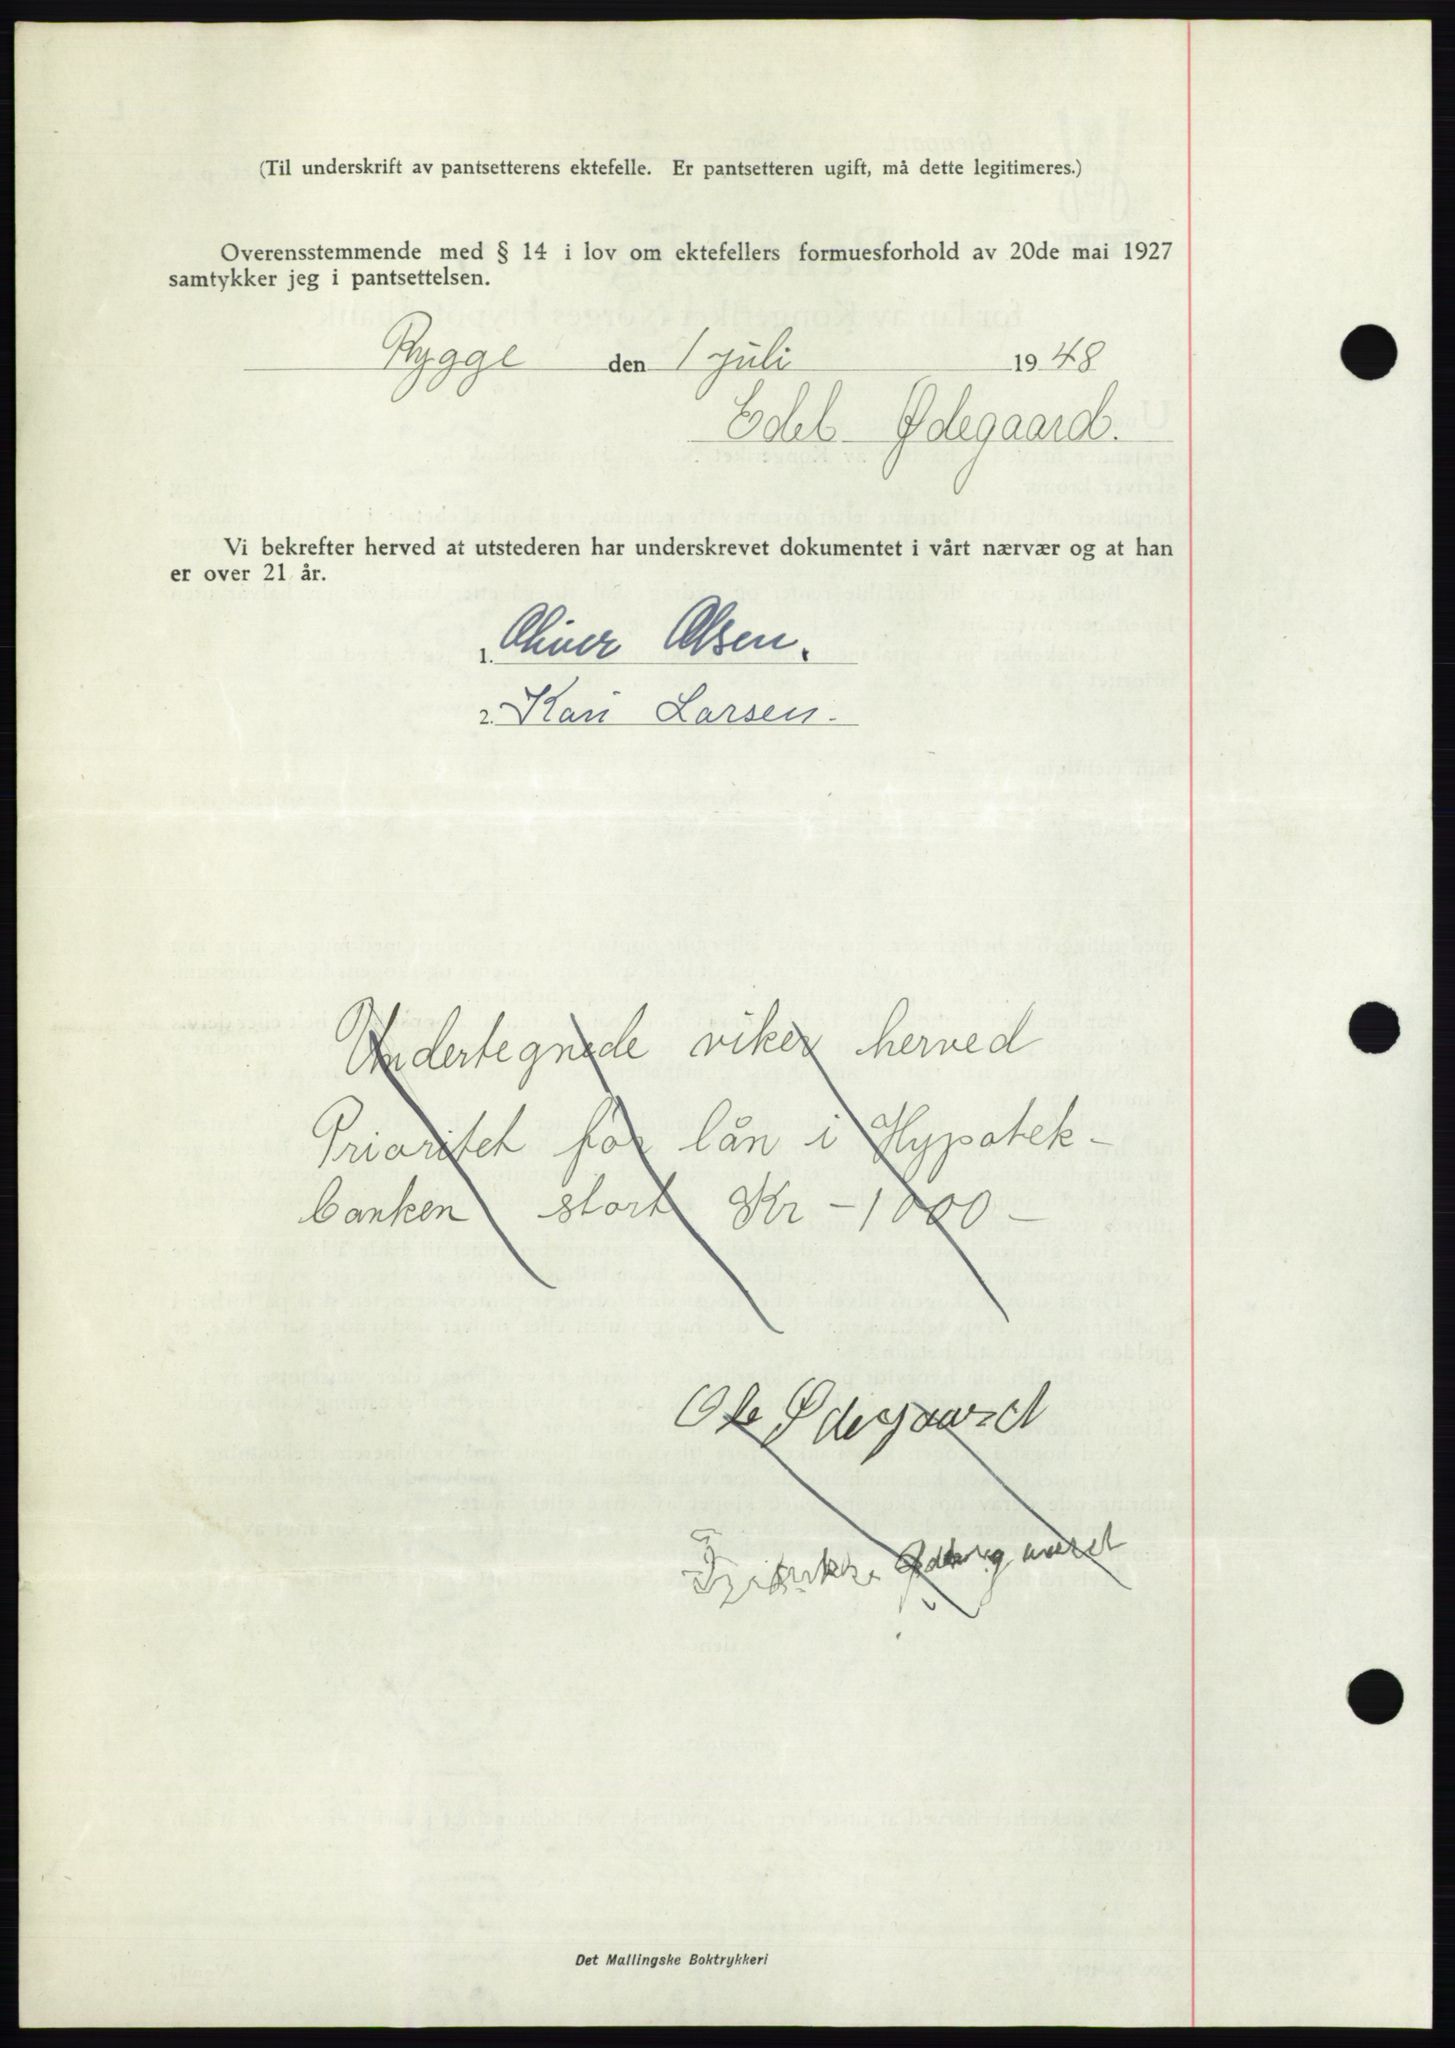 (Til underskrift av pantsetterens ektefelle. Er pantsetteren ugift, må dette legitimeres.)
Overensstemmende med § 14 i lov om ektefellers formuesforhold av 20de mai 1927
samtykker jeg i pantsettelsen.
Rygge den 1 juli 1948
Edel Ødegaard.
Vi bekrefter herved at utstederen har underskrevet dokumentet i vårt nærvær og at han
er over 21 år.
1. Oliver Olsen.
2. Kari Larsen.
Undertegnede viker herved
Prioritet for lån i Hypotek-
banken stort Kr -1000-
Ole Ødegaard
Ødegaard
Det Mallingske Boktrykkeri